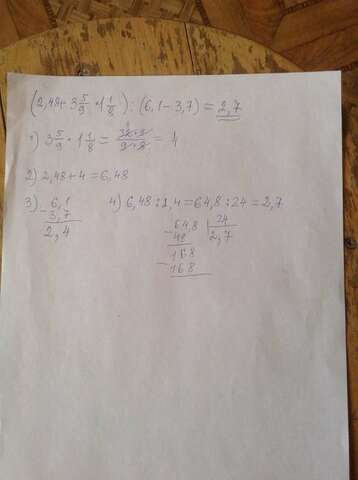 (2,48+3 5/9 · 1 1/8) : (6,1-3,7) = 2,7
1) 3 5/9 · 1 1/8 = 32·9/9·8 = 4
2) 2,48+4=6,48
3) 6,1
- 3,7
2,4
4) 6,48:1,4=64,8:24=2,7
64,8 | 24
- 48 2,7
168
- 168